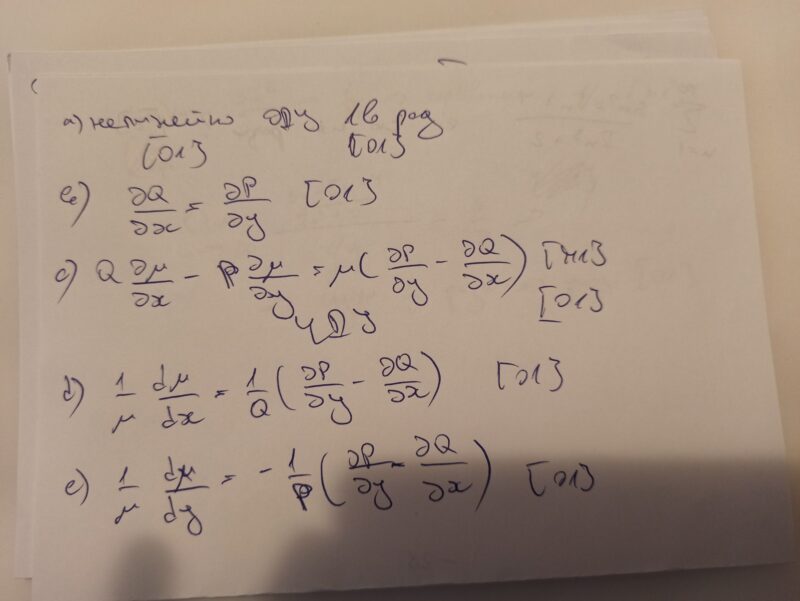 a) нелинейно ОДУ 1в ред
[01] [01]
b) ∂Q/∂x = ∂P/∂y [01]
c) Q ∂μ/∂x - P ∂μ/∂y = μ(∂P/∂y - ∂Q/∂x) [41]
ЧДУ [01]
d) 1/μ dμ/dx = 1/Q (∂P/∂y - ∂Q/∂x) [01]
e) 1/μ dμ/dy = - 1/P (∂P/∂y - ∂Q/∂x) [01]